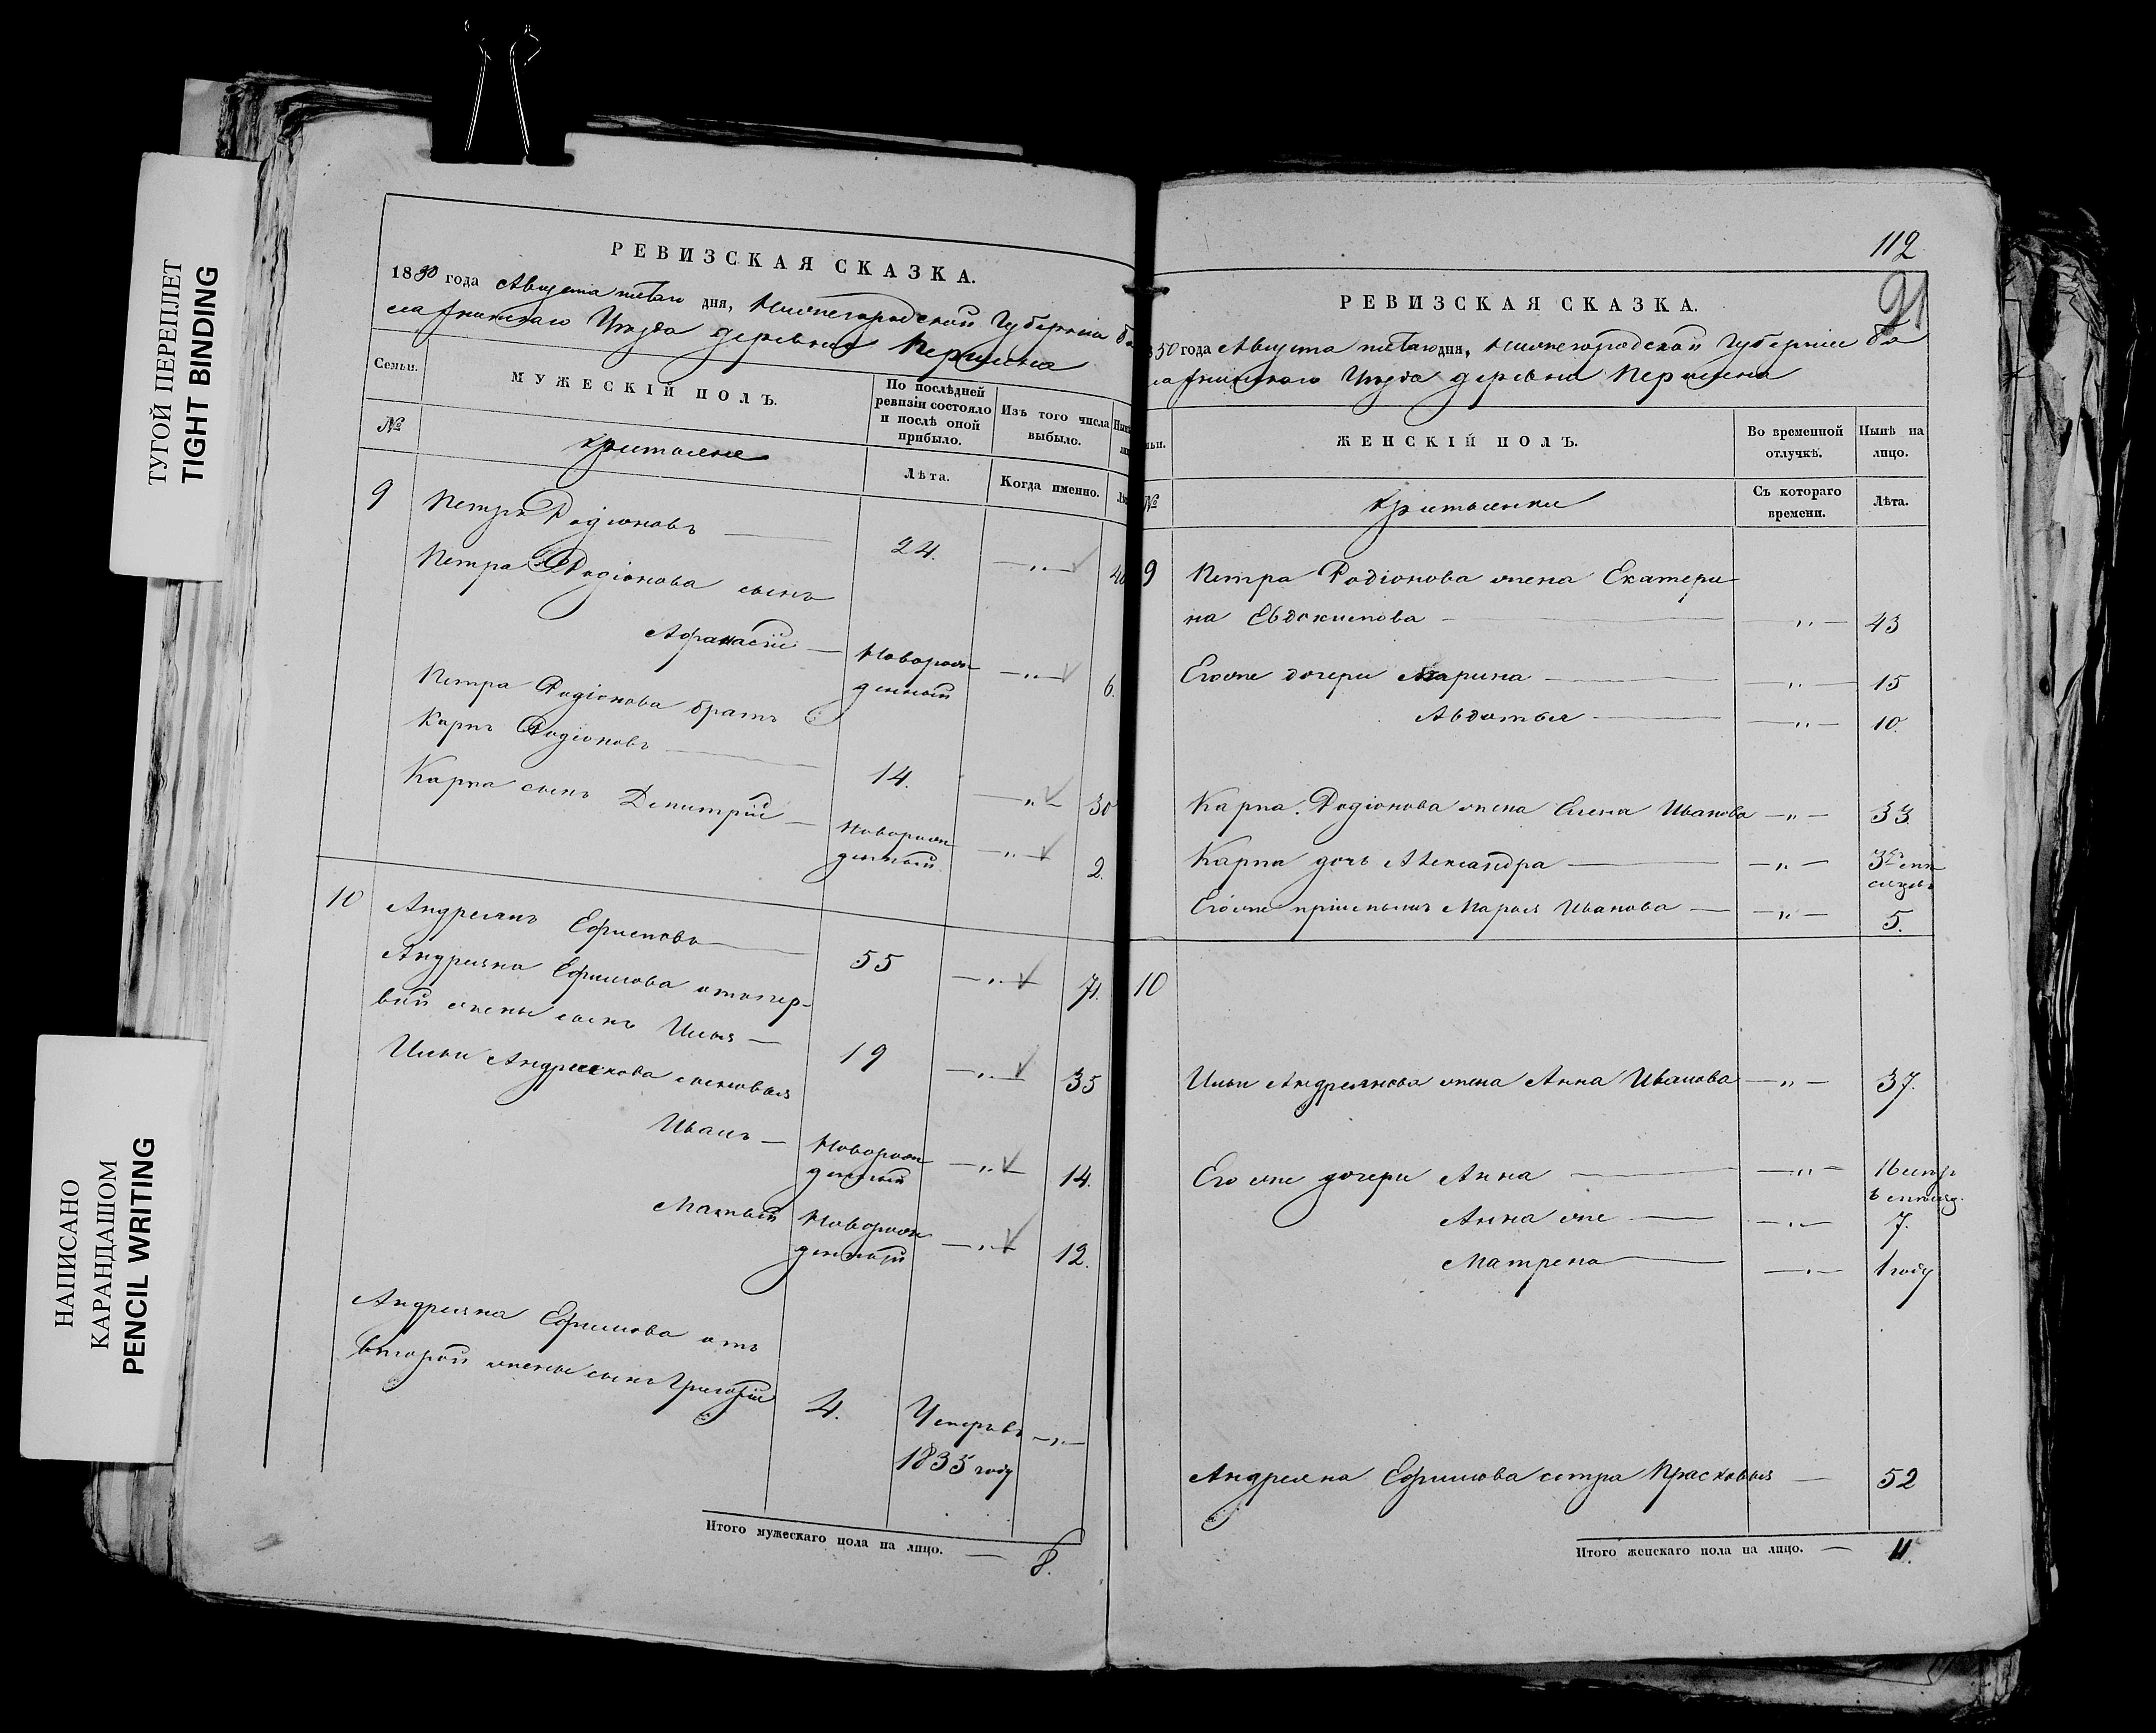 ТУГОЙ ПЕРЕПЛЕТ
TIGHT BINDING
НАПИСАНО
КАРАНДАШОМ
PENCIL WRITING
РЕВИЗСКАЯ СКАЗКА.
1850 года Августа пятаго дня, Нижегородской Губерніи Ба
лахнинскаго Уѣзда деревни Першина
Семьи.
МУЖЕСКІЙ ПОЛЪ.
По послѣдней
ревизіи состояло
и послѣ оной
прибыло.
Изъ того числа
выбыло.
№
крестьяне
Лѣта.
Когда именно.
9 Петръ Родіоновъ — 24. —"— 40
Петра Родіонова сынъ
Афанасій — Новорож
денный —"— 6.
Петра Родіонова братъ
Карпъ Родіоновъ — 14. —"— 30
Карпа сынъ Дмитрій — Новорож
денный —"— 2.
10 Андреянъ Ефимовъ — 55 —"— 71.
Андреяна Ефимова отпер-
вой жены сынъ Илья — 19 —"— 35
Ильи Андреянова сыновья
Иванъ — Новорож
денный —"— 14.
Матвей Новорож
денный —"— 12.
Андреяна Ефимова отъ
второй жены сынъ Григорій 4. Умеръ въ —"—
1835 году
Итого мужескаго пола на лицо. — 8.
112
91
РЕВИЗСКАЯ СКАЗКА.
850 года Августа пятаго дня, Нижегородской Губерніи Ба
лахнинскаго Уѣзда деревни Першина
ЖЕНСКІЙ ПОЛЪ.
Во временной
отлучкѣ.
Нынѣ на
лицо.
№
крестьянки
Съ котораго
времени.
Лѣта.
9 Петра Родіонова жена Екатери
на Евдокимова — " — 43
Егоже дочери Марина — " — 15
Авдотья — " — 10.
Карпа Родіонова жена Елена Иванова —"— 33
Карпа дочь Александра — —"— 3хъ мѣ
сяцовъ
Егоже пріемышъ Марья Иванова — —"— 5.
10
Ильи Андреянова жена Анна Иванова —"— 37.
Его же дочери Анна — —"—
Анна же — —"— 7.
Матрена — —"— 1 году
Андреяна Ефимова сестра Прасковья — 52
Итого женскаго пола на лицо. — 11.